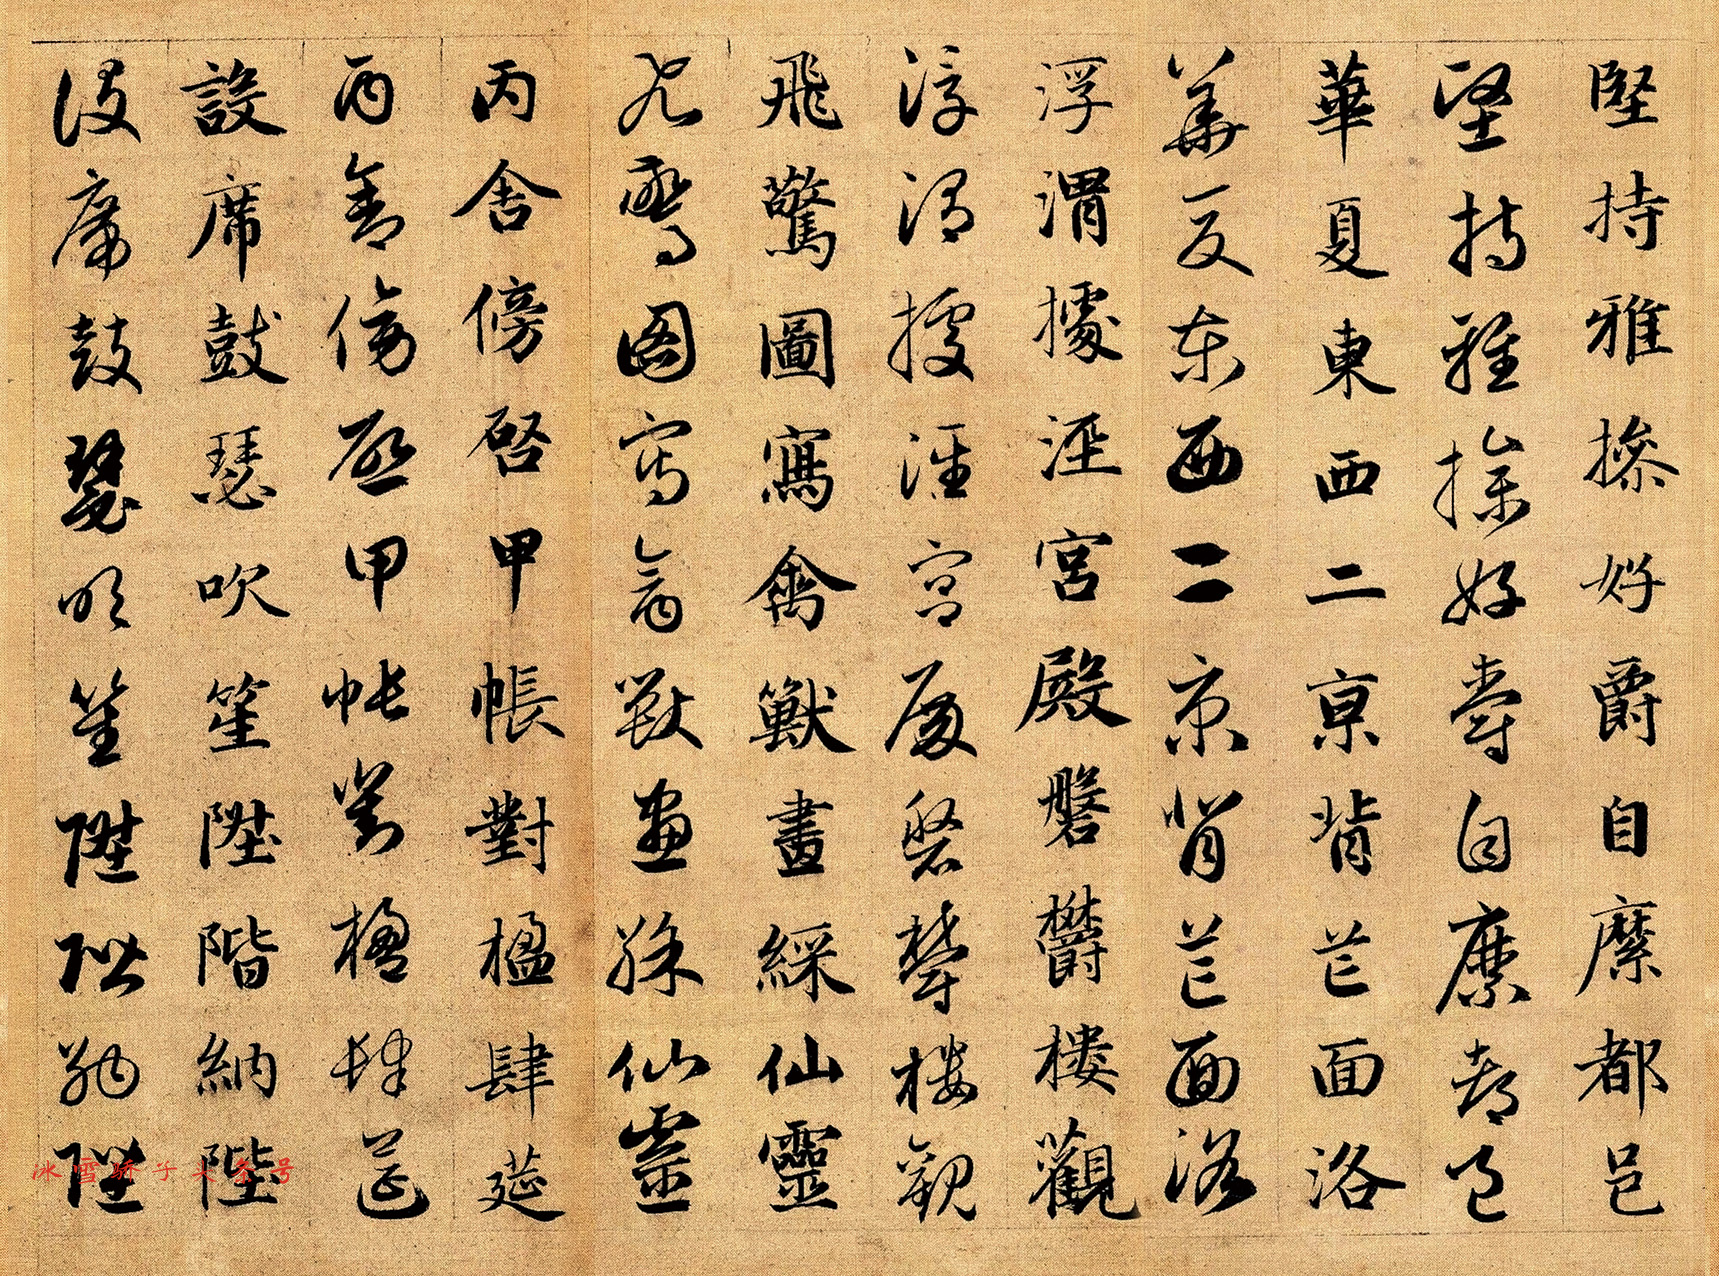 堅持雅操好爵自縻都邑
堅持雅操好爵自縻都邑
華夏東西二京背芒面洛
華夏東西二京背芒面洛
浮渭據涇宮殿磐欝樓觀
浮渭據涇宮殿磐欝樓觀
飛驚圖寫禽獸畫綵仙靈
飛驚圖寫禽獸畫綵仙靈
丙舍傍啓甲帳對楹肆筵
丙舍傍啓甲帳對楹肆筵
設席鼓瑟吹笙陞階納陛
設席鼓瑟吹笙陞階納陛
冰雪骄子头条号